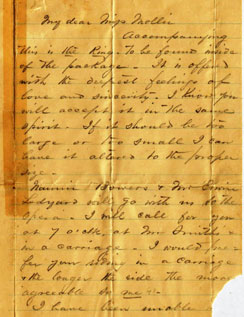 My dear Miss Mollie
Accompanying
this is the Ring - to be found inside
of the package - It is offered
with the deepest feelings of
love and sincerity - I know you
will accept it in the same
spirit - If it should be too
large or too small I can
have it altered to the proper
size -
Nannie Bowers & Mr
will go with us to the
Opera - I will call for you
at 7 o'clk at Mr Smiths
in a carriage - I would pre
fer you going in a carriage
& the longer the ride the more
agreeable to me -
I have been unable